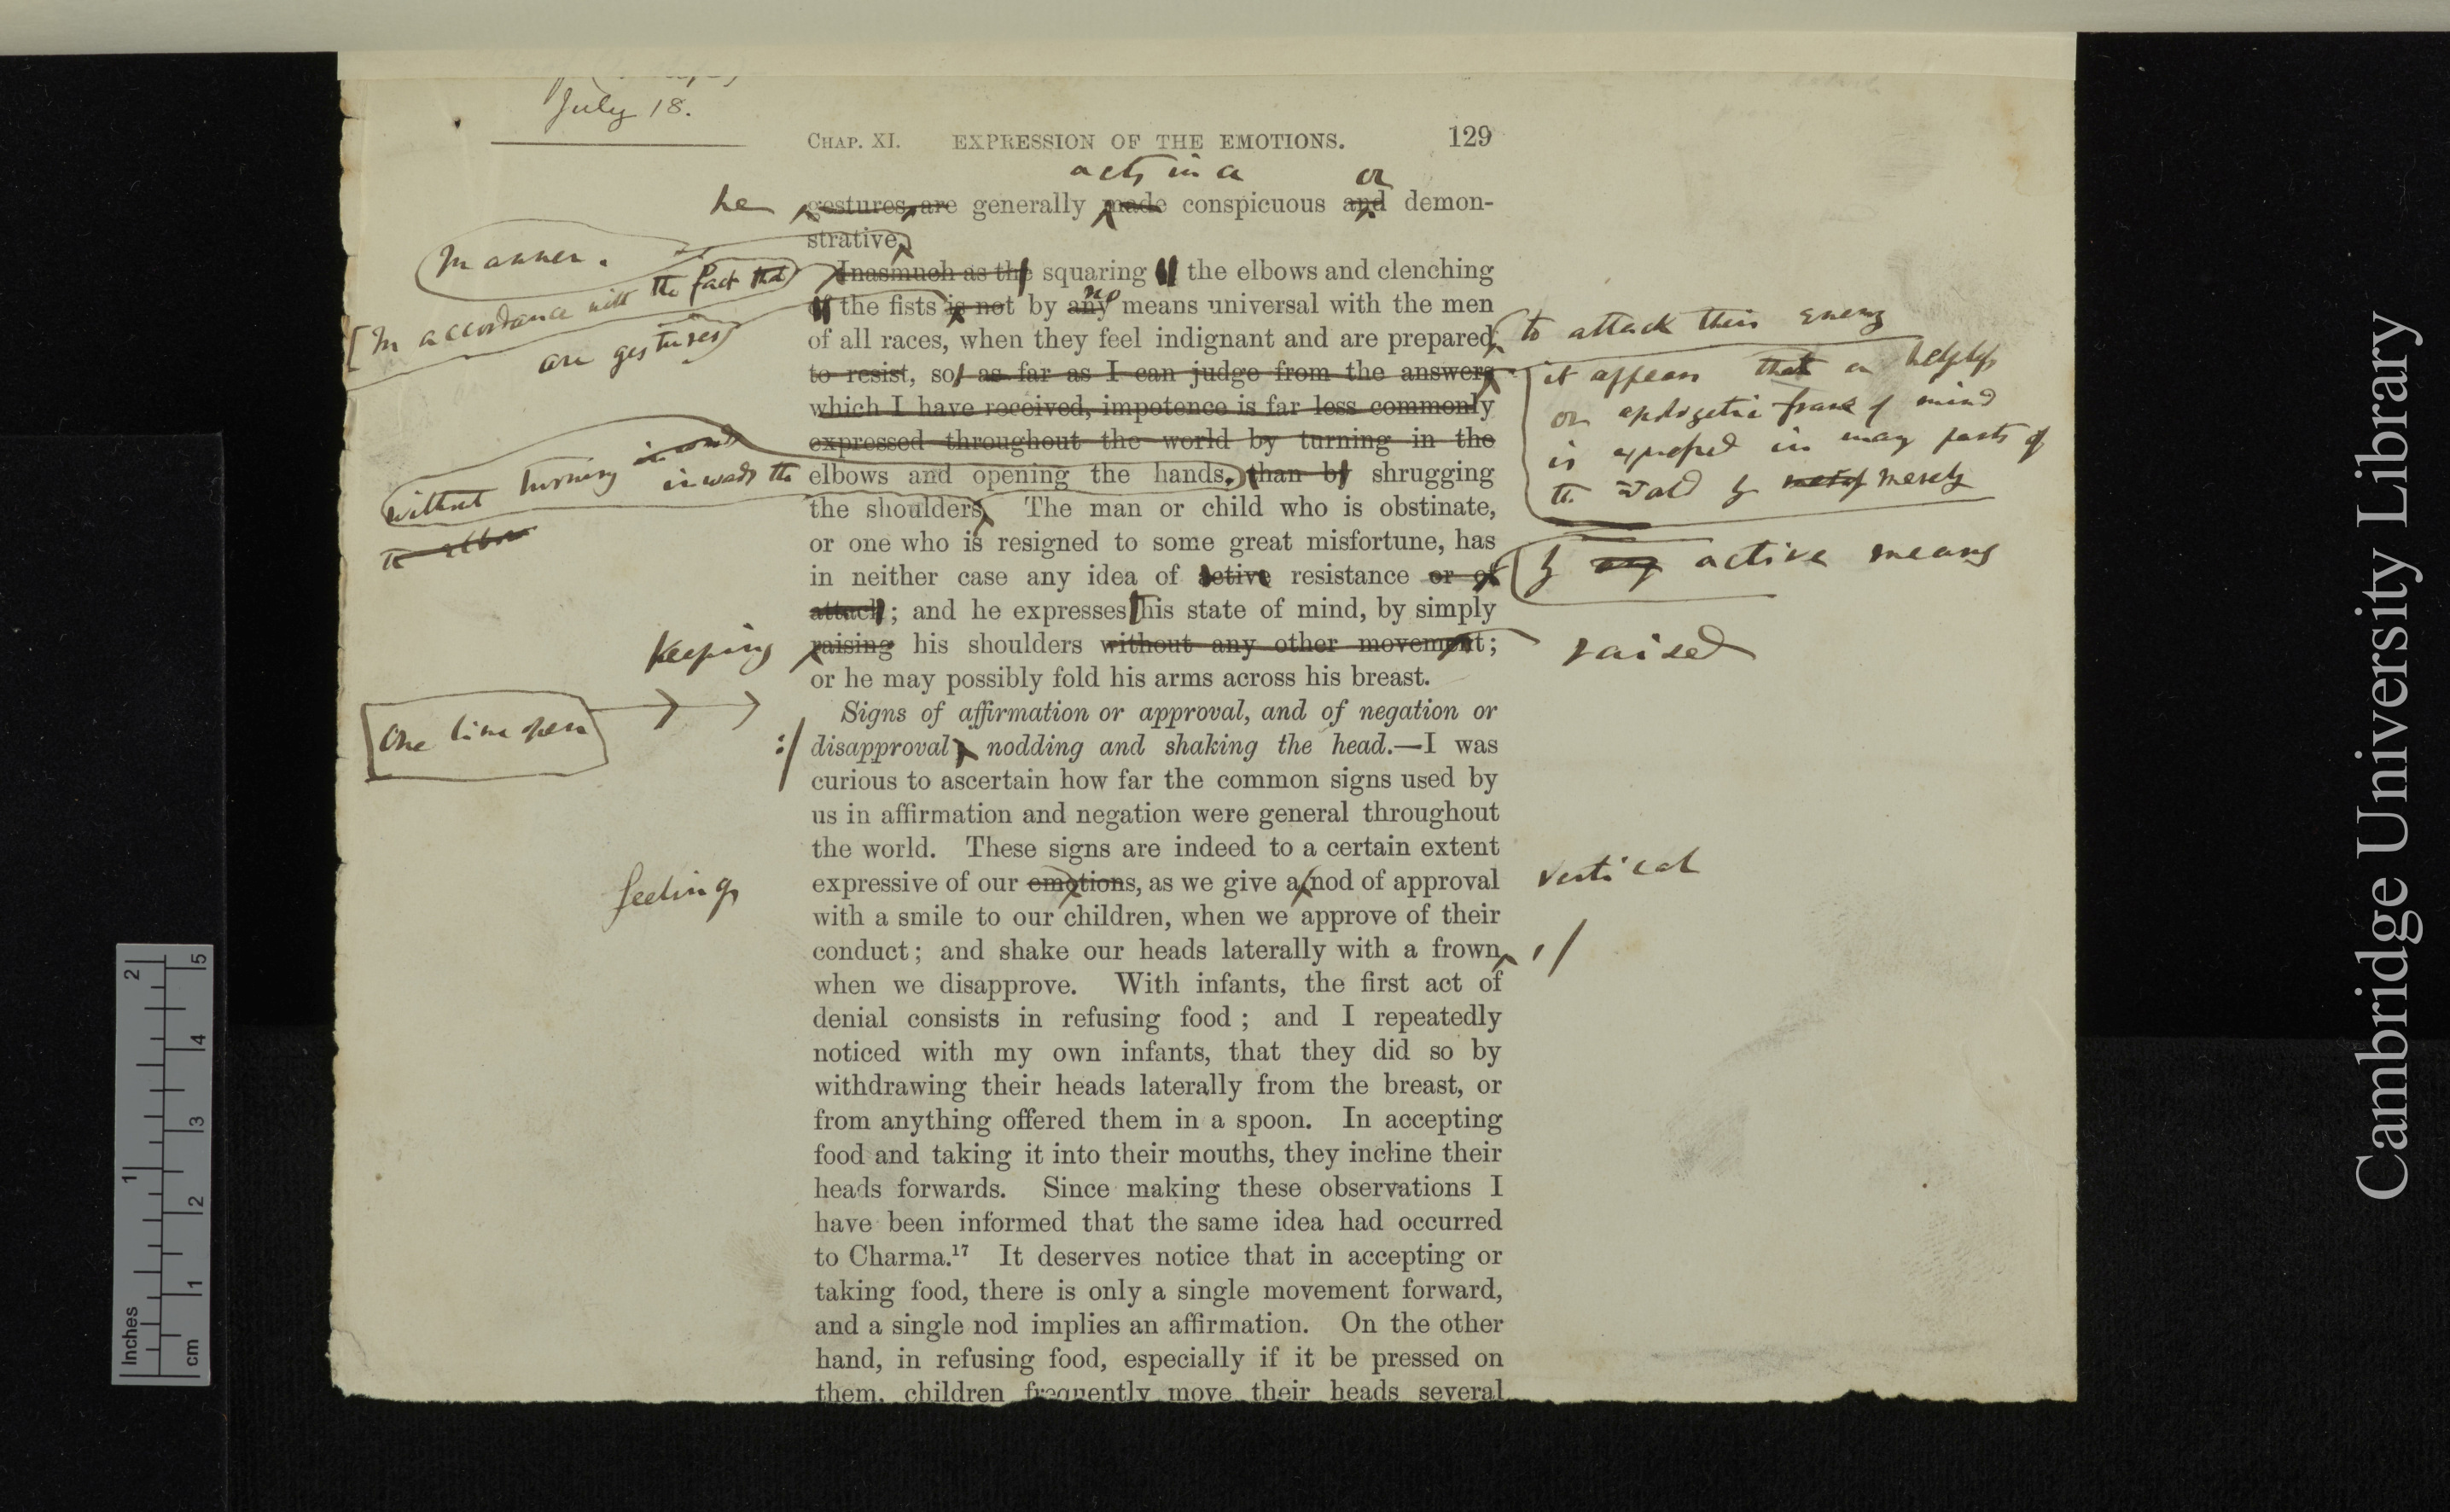 July 18.
CHAP. XI. EXPRESSION OF THE EMOTIONS. 129
acts in a or
he gestures are generally made conspicuous and demon-
strative.
manner.
[In accordance with the fact that
are gestures
Inasmuch as the squaring of the elbows and clenching
no
of the fists is not by any means universal with the men
of all races, when they feel indignant and are prepared
to attack their enemy
to resist, so, as far as I can judge from the answers
which I have received, impotence is far less commonly
expressed throughout the world by turning in the
it appears that an helpless
or apologetic frame of mind
is expressed in many parts of
the world by merely
without turning
inwards the
elbows and opening the hands, than by shrugging
the shoulders. The man or child who is obstinate,
or one who is resigned to some great misfortune, has
in neither case any idea of active resistance or of
by any active means
attack; and he expresses this state of mind, by simply
keeping raising his shoulders without any other movement; raised
or he may possibly fold his arms across his breast.
One line open
Signs of affirmation or approval, and of negation or
:/ disapproval, nodding and shaking the head.—I was
curious to ascertain how far the common signs used by
us in affirmation and negation were general throughout
the world. These signs are indeed to a certain extent
feelings expressive of our emotions, as we give a nod of approval vertical
with a smile to our children, when we approve of their
conduct; and shake our heads laterally with a frown ,/
when we disapprove. With infants, the first act of
denial consists in refusing food; and I repeatedly
noticed with my own infants, that they did so by
withdrawing their heads laterally from the breast, or
from anything offered them in a spoon. In accepting
food and taking it into their mouths, they incline their
heads forwards. Since making these observations I
have been informed that the same idea had occurred
to Charma.¹⁷ It deserves notice that in accepting or
taking food, there is only a single movement forward,
and a single nod implies an affirmation. On the other
hand, in refusing food, especially if it be pressed on
them, children frequently move their heads several
Inches 1 2
cm 1 2 3 4 5
Cambridge University Library